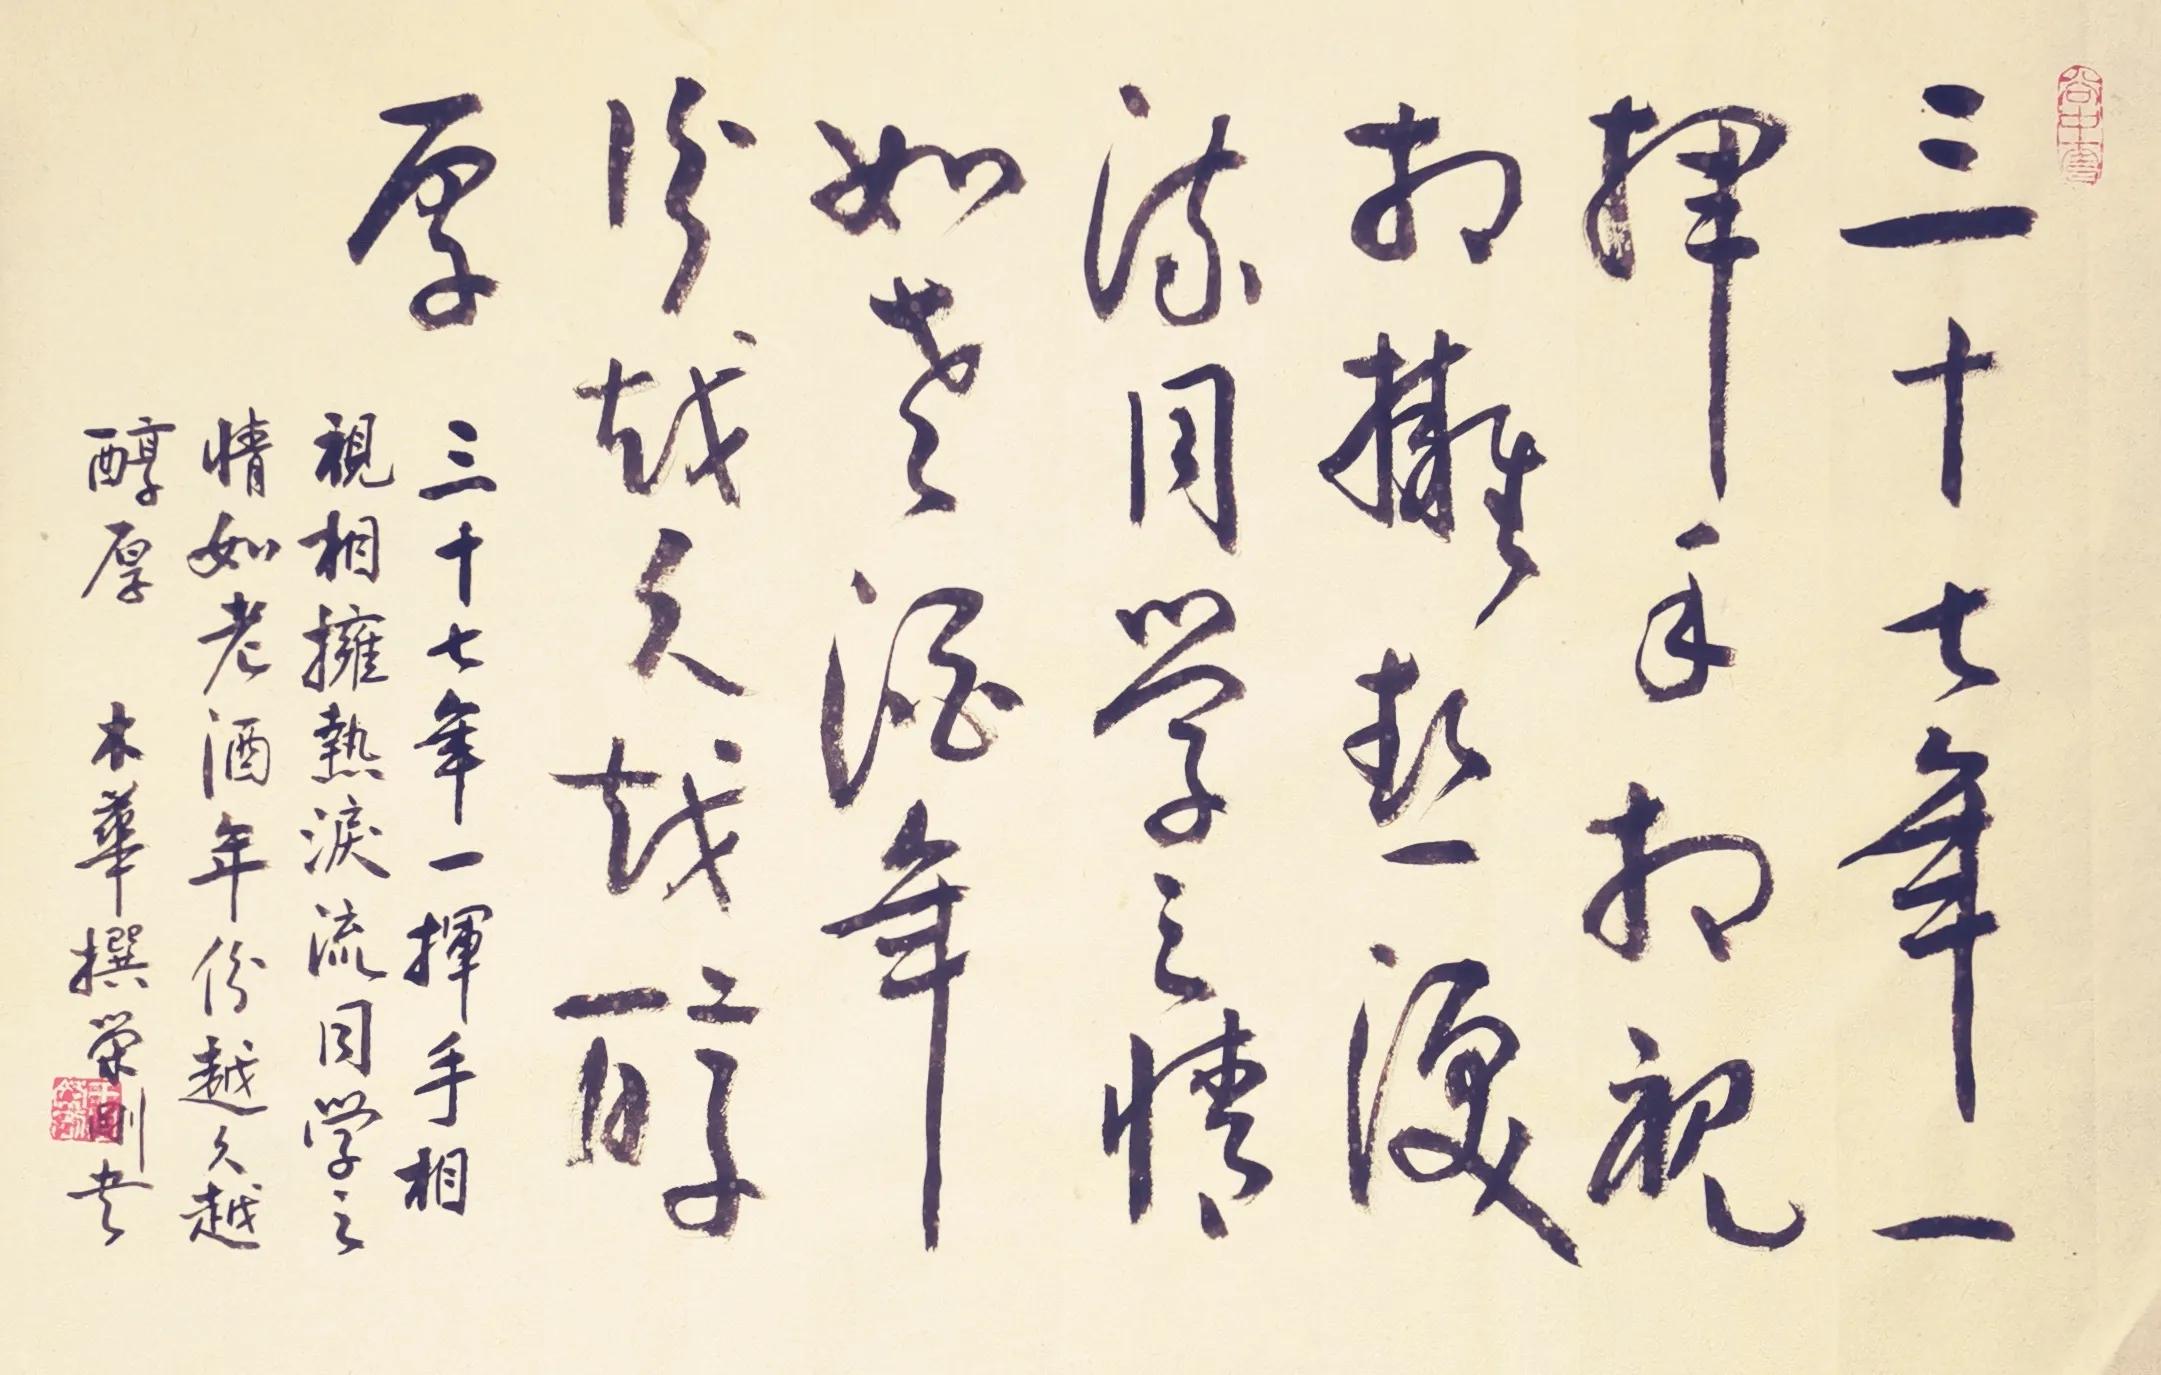 三十七年一
揮手相視
相擁熱淚
流同學之情
如老酒年
份越久越醇
厚
三十七年一揮手相
視相擁熱淚流同學之
情如老酒年份越久越
醇厚 木華撰榮剛書